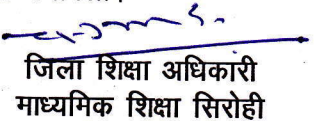 जिला शिक्षा अधिकारी
माध्यमिक शिक्षा सिरोही